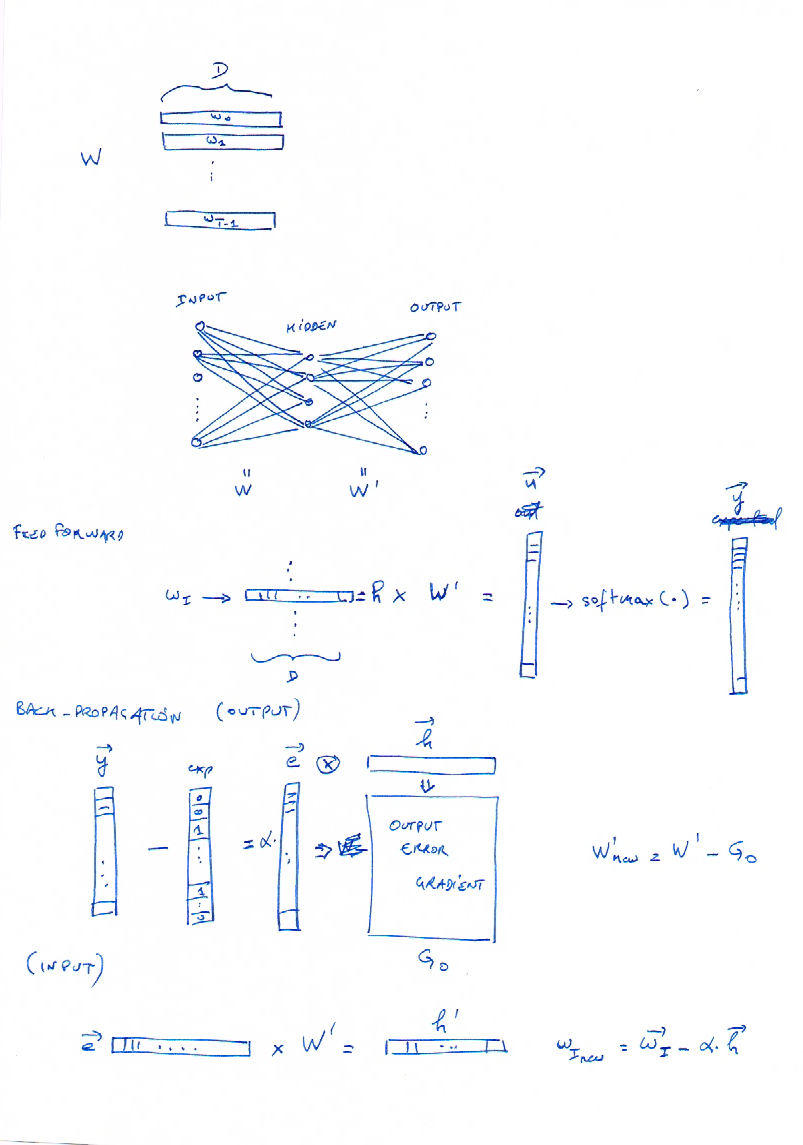 D
w₀
w₁
W
⋮
w_T-1
INPUT
HIDDEN
OUTPUT
" "
W W'
u⃗ y⃗
FEED FORWARD
w_I → = h × W' = → softmax(·) =
D
BACK-PROPAGATION (OUTPUT)
y⃗ exp e⃗ ⊗ h⃗
0
0
1
⋮
1
:
0
− = α· ⇒
OUTPUT
ERROR
GRADIENT
W'new = W' − G₀
G₀
(INPUT)
e⃗ × W' = h' w_I new = w⃗_I − α·h⃗